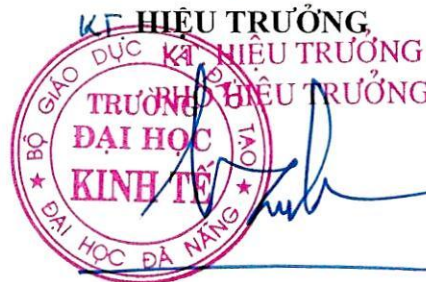 KT HIỆU TRƯỞNG
KT HIỆU TRƯỞNG
PHÓ HIỆU TRƯỞNG
BỘ GIÁO DỤC VÀ ĐÀO TẠO
TRƯỜNG
ĐẠI HỌC
KINH TẾ
★ ĐẠI HỌC ĐÀ NẴNG ★